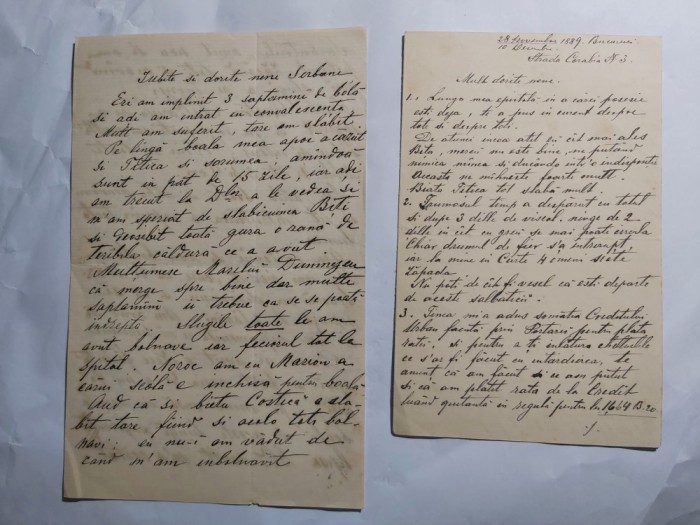 Iubite si dorite nene Serbane
Eri am implinit 3 saptamini de bólă
si adi am entrat en convalescenta
Mult am suferit, tare am slăbit
Pe lingă boala mea apoi a cădut
si Titica si sorumea, amindoă
sunt in pat de 15 zile, iar adi
am trecut la D-lor a le vedea si
m'am speriat de slabiciunea Biti
si deosebit toată gura o rană de
teribila căldură ce a avut.
Multumesc Marelui Dumnezeu
că merge spre bine dar multe
saptamini ii trebue ca se se poată
indrepta. Slugile toate le am
avut bolnave iar feciorul tot la
spital. Noroc am cu Marion a
cărui scólă e inchisă pentru boală
Aud că si bietu Costică a sla-
bit tare fiind si acolo toti bol-
navi; eu nu-i am vădut de
când m'am inbolnavit
28 Noembrie 1889. Bucuresci
10 Decembr.
Strada Corabia N 3.
Mult dorite nene.
1. Lunga mea epistolă in a cărei posesie
esti deja, te a pus in curent despre
toti si despre tóte.
De atunci incoa atât eu cit mai ales
Bita, mersi nu este bine, ne putând
nimica minca si ducând intr'o indispositie
Aceasta ne mihneste foarte mult.
Biata Titica tot slabă mult.
2. Frumosul timp a dispărut cu totul
si după 3 dille de viscol, ninge de 2
dille in cit cu greu se mai poate circula
Chiar drumul de fier s'a intrerupt,
iar la mine in Curte 4 omeni scote
zapada.
Nu poti de cit fi vesel că esti departe
de aceste salbaticii.
3. Timea mi a adus somatia Creditului
Urban facută prin Portarei pentru plata
ratii. si pentru a ti inlatura cheltuelile
ce s'ar fi făcut cu intardierea, te
anunt că am făcut si ce am putut
si că am platit rata de la Credit
luând quitantă in regulă pentru lei 1664 B. 20.